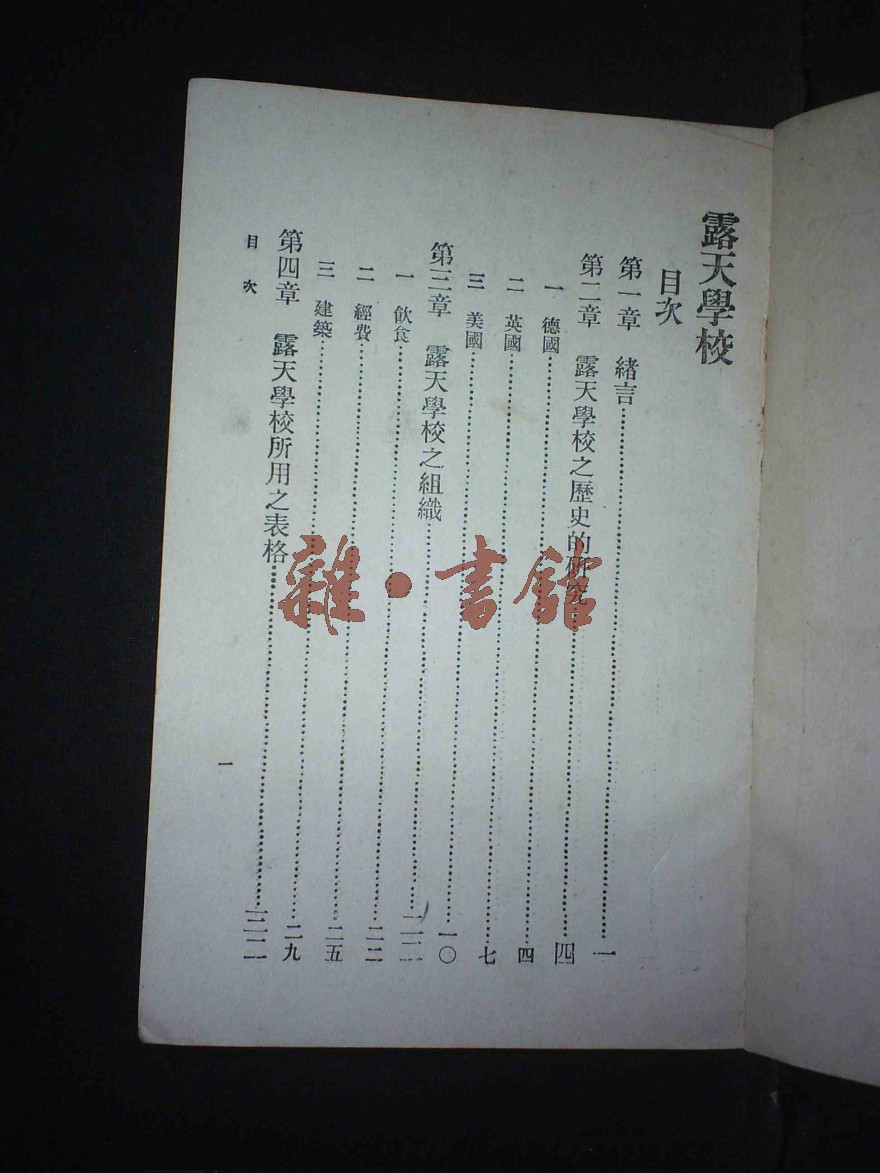 露天學校
目次
第一章 緒言……一
第二章 露天學校之歷史的研究……四
一 德國……四
二 英國……七
三 美國……一〇
第三章 露天學校之組織……二二
一 飲食……二二
二 經費……二五
三 建築……二九
第四章 露天學校所用之表格……三二
目次
一
雜·書館